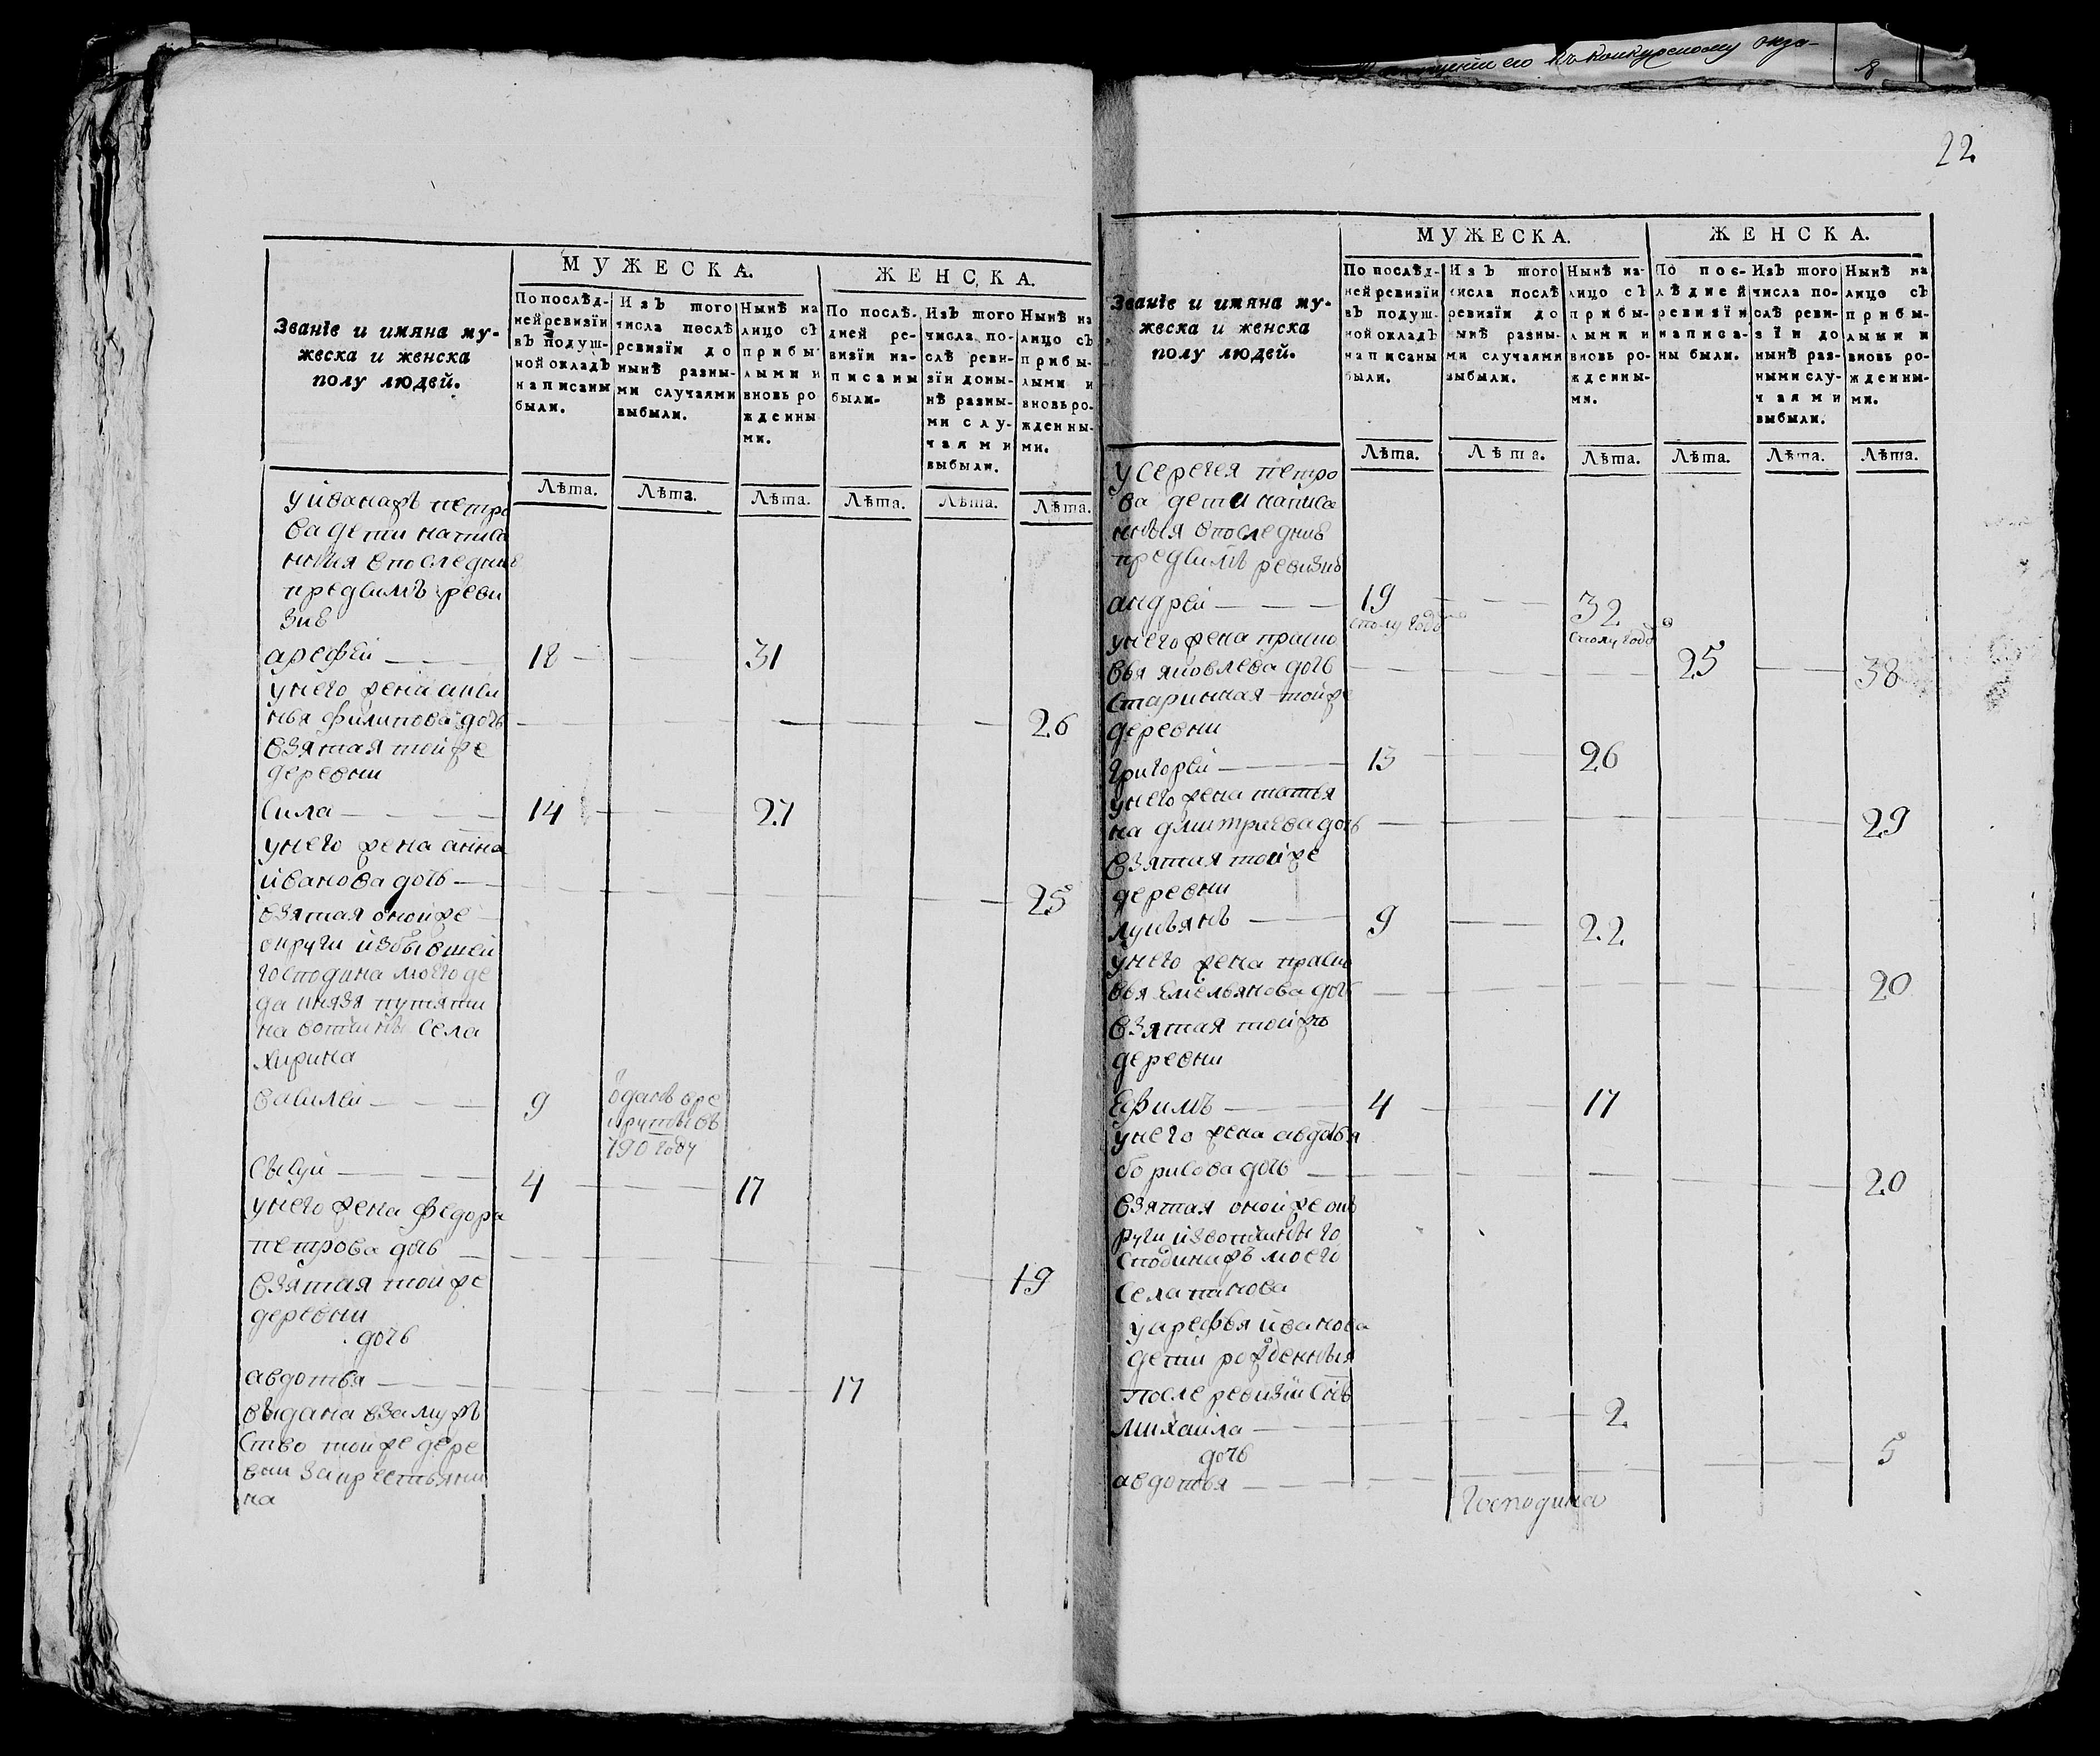 МУЖЕСКА.
ЖЕНСКА.
Званіе и имяна му-
жеска и женска
полу людей.
По послѣд-
ней ревизіи
въ подуш-
ной окладъ
написаны
были.
Изъ того
числа послѣ
ревизіи до
нынѣ разны-
ми случаями
выбыли.
Нынѣ на
лицо съ
прибы-
лыми и
вновь ро
жденны
ми.
По послѣ-
дней ре-
визіи на-
писаны
были.
Изъ того
числа по-
слѣ реви-
зіи доны-
нѣ разны-
ми слу-
чаями
выбыли.
Нынѣ на
лицо съ
прибы-
лыми и
вновь ро-
жденны-
ми.
Лѣта. Лѣта. Лѣта. Лѣта. Лѣта. Лѣта.
уйванажъ петро
ва дети написа
ныя впоследние
предсимъ реви
зие
арефеи 18 31
унего жена акси
нья филипова дочь 26
взятая тойже
деревни
Сила 14 27
унего жена анна
иванова дочь 25
взятая онойже
округи избывшей
господина моего де
да князя путяти
на вотчины села
Хирина
василеи 9 отданъ вре
круты въ
790 году
Сысуи 4 17
унего жена федора
петрова дочь
взятая тойже 19
деревни
дочь
авдотья 17
выдана взамуж
ство тойже дере
вни закрестьяни
на
22
МУЖЕСКА.
ЖЕНСКА.
Званіе и имяна му-
жеска и женска
полу людей.
По послѣд-
ней ревизіи
въ подуш-
ной окладъ
написаны
были.
Изъ того
числа послѣ
ревизіи до
нынѣ разны-
ми случаями
выбыли.
Нынѣ на-
лицо съ
прибы-
лыми и
вновь ро-
жденны-
ми.
По пос-
лѣдней
ревизіи
написа-
ны были.
Изъ того
числа по-
слѣ реви-
зіи до
нынѣ раз-
ными слу-
чаями
выбыли.
Нынѣ на
лицо съ
прибы-
лыми и
вновь ро-
жденны-
ми.
Лѣта. Лѣта. Лѣта. Лѣта. Лѣта. Лѣта.
усергея петро
ва дети написа
ныя впоследние
предсимъ ревизие
андреи 19 32
сполу годо сполу годо
унего жена праско
вья яковлева дочь 25 38
старинная тойже
деревни
григореи 13 26
унего жена татья
на дмитриева дочь 29
взятая тойже
деревни
лукьянъ 9 22
унего жена праско
вья емельянова дочь 20
взятая тойже
деревни
ефимъ 4 17
унего жена авдотья
борисова дочь 20
взятая онойже ок
руги извотчины го
сподинажъ моего
села панова
уарефья иванова
дети рожденныя
после ревизіи сынъ
михаила 2
дочь
авдотья 5
господина